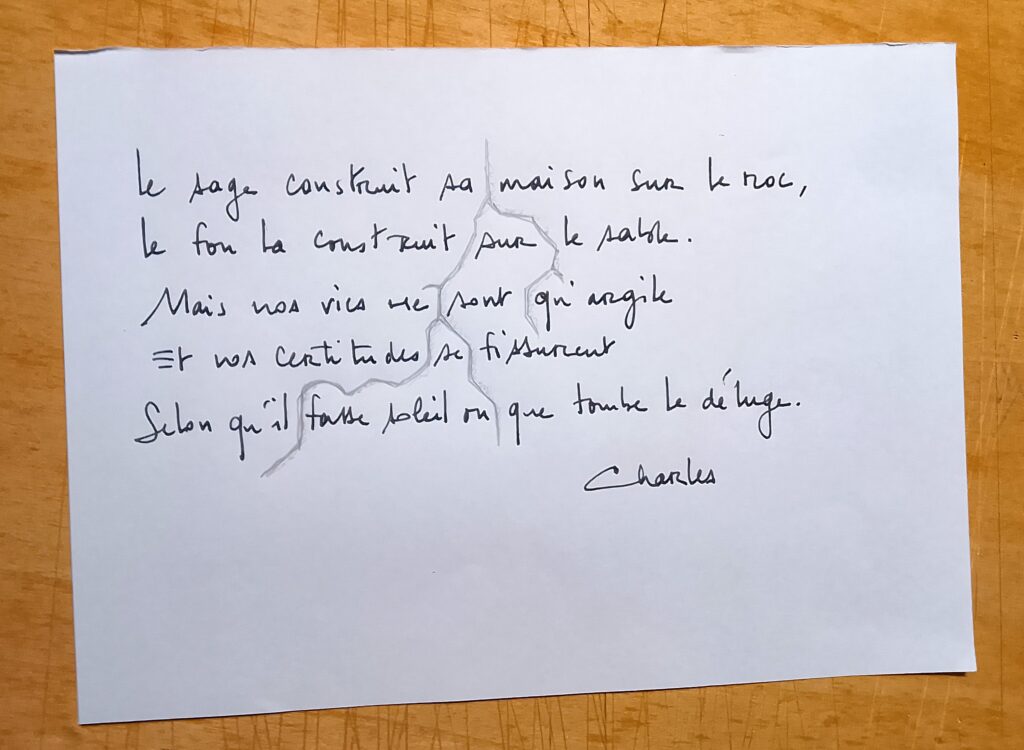 Le sage construit sa maison sur le roc,
le fou la construit sur le sable.
Mais nos vies ne sont qu'argile
Et nos certitudes se fissurent
Selon qu'il fasse soleil ou que tombe le déluge.
Charles